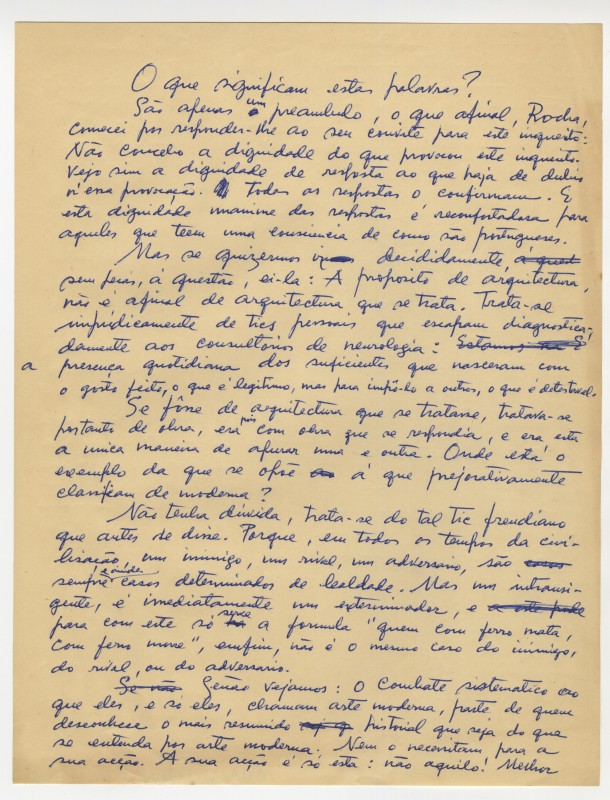 O que significam estas palavras?
São apenas um preambulo, o que afinal, Rocha,
comecei por responder-lhe ao seu convite para este inquerito:
Não concebo a dignidade do que provocou este inquerito.
Vejo sim a dignidade de resposta ao que haja de dubio
n'essa provocação. Todas as respostas o confirmam. E
esta dignidade unanime das respostas é reconfortadora para
aqueles que teem uma consciencia de como são portugueses.
Mas se quizermos ir decididamente, á quest
sem peias, á questão, ei-la: A proposito de arquitectura,
não é afinal de arquitectura que se trata. Trata-se
impúdicamente de tics pessoais que escapam diagnostica-
damente aos consultórios de neurologia: Estamos na É
a presença quotidiana dos suficientes que nasceram com
o gosto feito, o que é legitimo, mas para impô-lo a outros, o que é detestavel.
Se fôsse de arquitectura que se tratasse, tratava-se
portanto de obra, era pois com obra que se respondia, e era esta
a unica maneira de apurar uma e outra. Onde está o
exemplo da que se opõe á que prejorativamente
classificam de moderna?
Não tenha dúvida, trata-se do tal tic freudiano
que antes se disse. Porque, em todos os tempos da civi-
lisação, um inimigo, um rival, um adversario, são casos
sempre e ainda casos determinados de lealdade. Mas um intransi-
gente, é imediatamente um exterminador, e a este pode
para com este só serve a formula "quem com ferro mata,
com ferro morre", emfim, não é o mesmo caso do inimigo,
do rival, ou do adversario.
Se não Senão vejamos: O combate sistematico ao
que eles, e só eles, chamam arte moderna, parte de quem
desconhece o mais resumido historial que seja do que
se entenda por arte moderna. Nem o necessitam para a
sua acção. A sua acção é só esta: não aquilo! Melhor